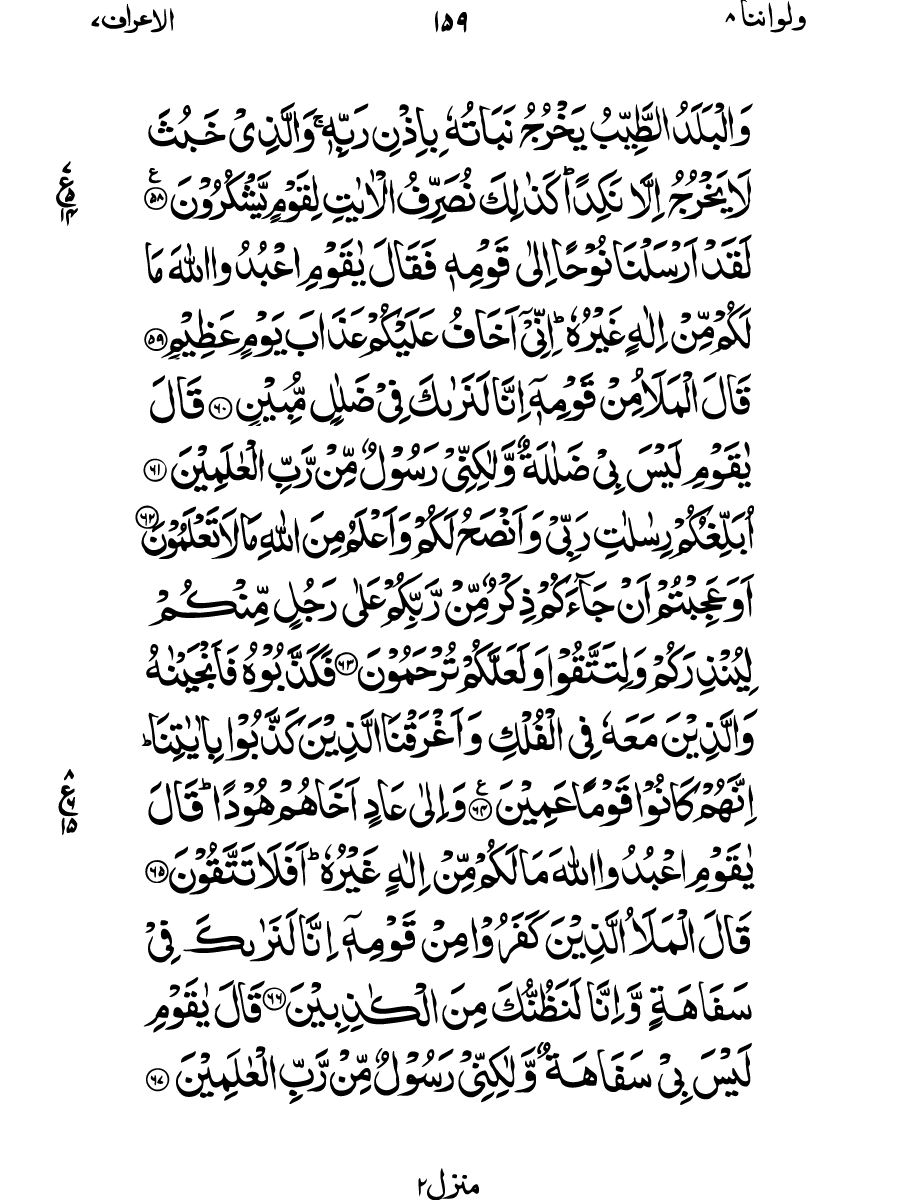 ولواننا ٨
١٥٩
الاعراف ٧
وَالْبَلَدُ الطَّيِّبُ يَخْرُجُ نَبَاتُهٗ بِاِذْنِ رَبِّهٖ ۚ وَالَّذِىْ خَبُثَ
لَا يَخْرُجُ اِلَّا نَكِدًا ؕ كَذٰلِكَ نُصَرِّفُ الْاٰيٰتِ لِقَوْمٍ يَّشْكُرُوْنَ ﴿۵۸﴾ ع
٧
ع
۵
١٤
لَقَدْ اَرْسَلْنَا نُوْحًا اِلٰى قَوْمِهٖ فَقَالَ يٰقَوْمِ اعْبُدُوا اللّٰهَ مَا
لَكُمْ مِّنْ اِلٰهٍ غَيْرُهٗ ؕ اِنِّىْۤ اَخَافُ عَلَيْكُمْ عَذَابَ يَوْمٍ عَظِيْمٍ ﴿۵۹﴾
قَالَ الْمَلَاُ مِنْ قَوْمِهٖۤ اِنَّا لَنَرٰىكَ فِىْ ضَلٰلٍ مُّبِيْنٍ ﴿۶۰﴾ قَالَ
يٰقَوْمِ لَيْسَ بِىْ ضَلٰلَةٌ وَّلٰكِنِّىْ رَسُوْلٌ مِّنْ رَّبِّ الْعٰلَمِيْنَ ﴿۶۱﴾
اُبَلِّغُكُمْ رِسٰلٰتِ رَبِّىْ وَاَنْصَحُ لَكُمْ وَاَعْلَمُ مِنَ اللّٰهِ مَا لَا تَعْلَمُوْنَ ﴿۶۲﴾
اَوَعَجِبْتُمْ اَنْ جَآءَكُمْ ذِكْرٌ مِّنْ رَّبِّكُمْ عَلٰى رَجُلٍ مِّنْكُمْ
لِيُنْذِرَكُمْ وَلِتَتَّقُوْا وَلَعَلَّكُمْ تُرْحَمُوْنَ ﴿۶۳﴾ فَكَذَّبُوْهُ فَاَنْجَيْنٰهُ
وَالَّذِيْنَ مَعَهٗ فِى الْفُلْكِ وَاَغْرَقْنَا الَّذِيْنَ كَذَّبُوْا بِاٰيٰتِنَا ؕ
اِنَّهُمْ كَانُوْا قَوْمًا عَمِيْنَ ﴿۶۴﴾ ع وَاِلٰى عَادٍ اَخَاهُمْ هُوْدًا ؕ قَالَ
٨
ع
۶
١۵
يٰقَوْمِ اعْبُدُوا اللّٰهَ مَا لَكُمْ مِّنْ اِلٰهٍ غَيْرُهٗ ؕ اَفَلَا تَتَّقُوْنَ ﴿۶۵﴾
قَالَ الْمَلَاُ الَّذِيْنَ كَفَرُوْا مِنْ قَوْمِهٖۤ اِنَّا لَنَرٰىكَ فِىْ
سَفَاهَةٍ وَّاِنَّا لَنَظُنُّكَ مِنَ الْكٰذِبِيْنَ ﴿۶۶﴾ قَالَ يٰقَوْمِ
لَيْسَ بِىْ سَفَاهَةٌ وَّلٰكِنِّىْ رَسُوْلٌ مِّنْ رَّبِّ الْعٰلَمِيْنَ ﴿۶۷﴾
منزل٢